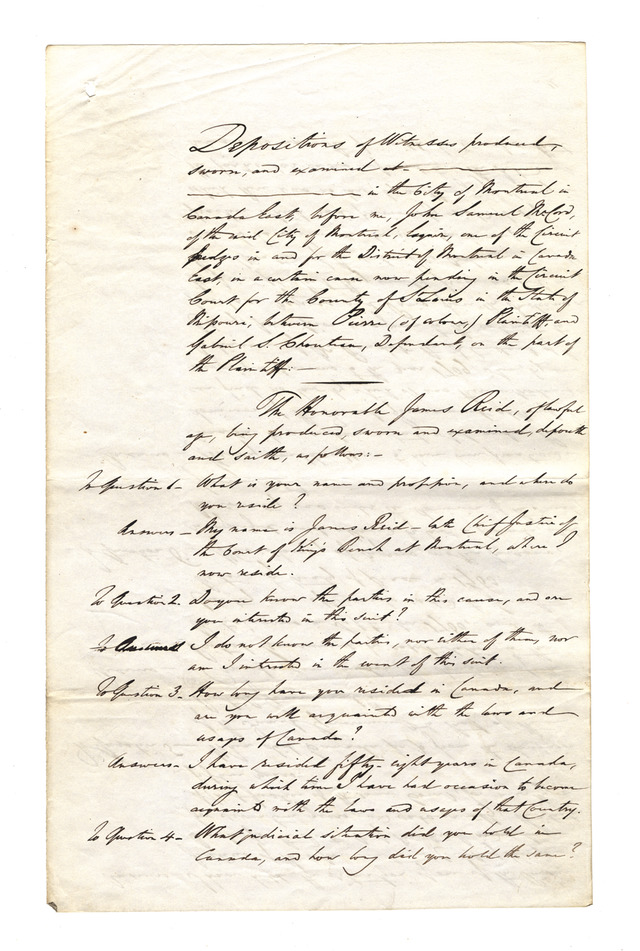 Depositions of Witnesses produced,
sworn, and examined at
in the City of Montreal in
Canada East, before me, John Samuel McCord,
of the said City of Montreal, Esquire, one of the Circuit
Judges in and for the District of Montreal in Canada
East, in a certain cause now pending in the Circuit
Court for the County of St Louis in the State of
Missouri, between Pierre (of colour) Plaintiff, and
Gabriel S. Chouteau, Defendant, on the part of
the Plaintiff:—
The Honorable James Reid, of lawful
age, being produced, sworn and examined, deposeth
and saith, as follows:—
To Question 1— What is your name and profession, and where do
you reside?
Answers— My name is James Reid— late Chief Justice of
the Court of King's Bench at Montreal, where I
now reside.
To Question 2. Do you know the parties in this cause, and are
you interested in this suit?
Answers I do not know the parties, nor either of them, nor
am I interested in the event of this suit.
To Question 3— How long have you resided in Canada, and
are you well acquainted with the laws and
usages of Canada?
Answers— I have resided fifty-eight years in Canada,
during which time I have had occasion to become
acquainted with the laws and usages of that Country.
To Question 4— What judicial situation did you hold in
Canada, and how long did you hold the same?